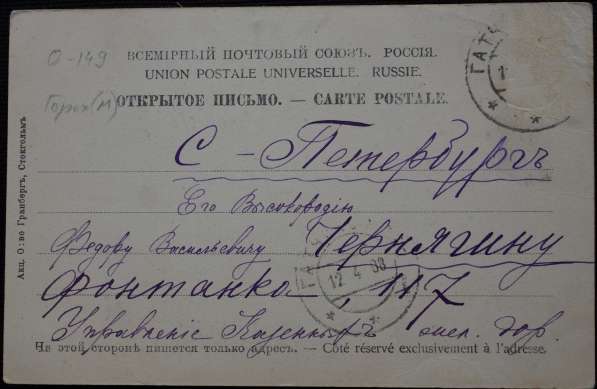 О-149
ВСЕМІРНЫЙ ПОЧТОВЫЙ СОЮЗЪ. РОССІЯ.
UNION POSTALE UNIVERSELLE. RUSSIE.
ОТКРЫТОЕ ПИСЬМО. — CARTE POSTALE.
ГАТЧ
С-Петербургъ
Его Высокородію
Федору Васильевичу Чернягину
Фонтанка, 117
12 4 08
Управленіе Казенныхъ жел. дор.
На этой сторонѣ пишется только адресъ. — Côté réservé exclusivement à l'adresse.
Акц. О-во Гранбергъ, Стокгольмъ